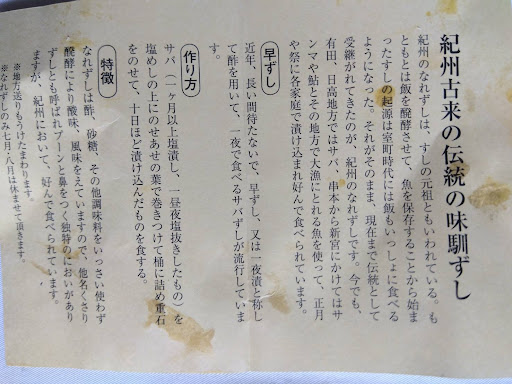 紀州古来の伝統の味馴ずし
紀州のなれずしは、すしの元祖ともいわれている。も
ともとは飯を醗酵させて、魚を保存することから始ま
ったすしの起源は室町時代には飯もいっしょに食べる
ようになった。それがそのまま、現在まで伝統として
受継がれてきたのが、紀州のなれずしです。今でも、
有田、日高地方ではサバ、串本から新宮にかけてはサ
ンマや鮎とその地方で大漁にとれる魚を使って、正月
や祭に各家庭で漬け込まれ好んで食べられています。
早ずし
近年、長い間待たないで、早ずし、又は一夜漬と称し
て酢を用いて、一夜で食べるサバずしが流行していま
す。
作り方
サバ(一ヶ月以上塩漬し、一昼夜塩抜きしたもの)を
塩めしの上にのせあせの葉で巻きつけて桶に詰め重石
をのせて、十日ほど漬け込んだものを食する。
特徴
なれずしは酢、砂糖、その他調味料をいっさい使わず
醗酵により酸味、風味をえていますので、他名くさり
ずしとも呼ばれプーンと鼻をつく独特のにおいがあり
ますが、紀州において、好んで食べられています。
※地方送りもうけたまわります。
※なれずしのみ七月・八月は休ませて頂きます。